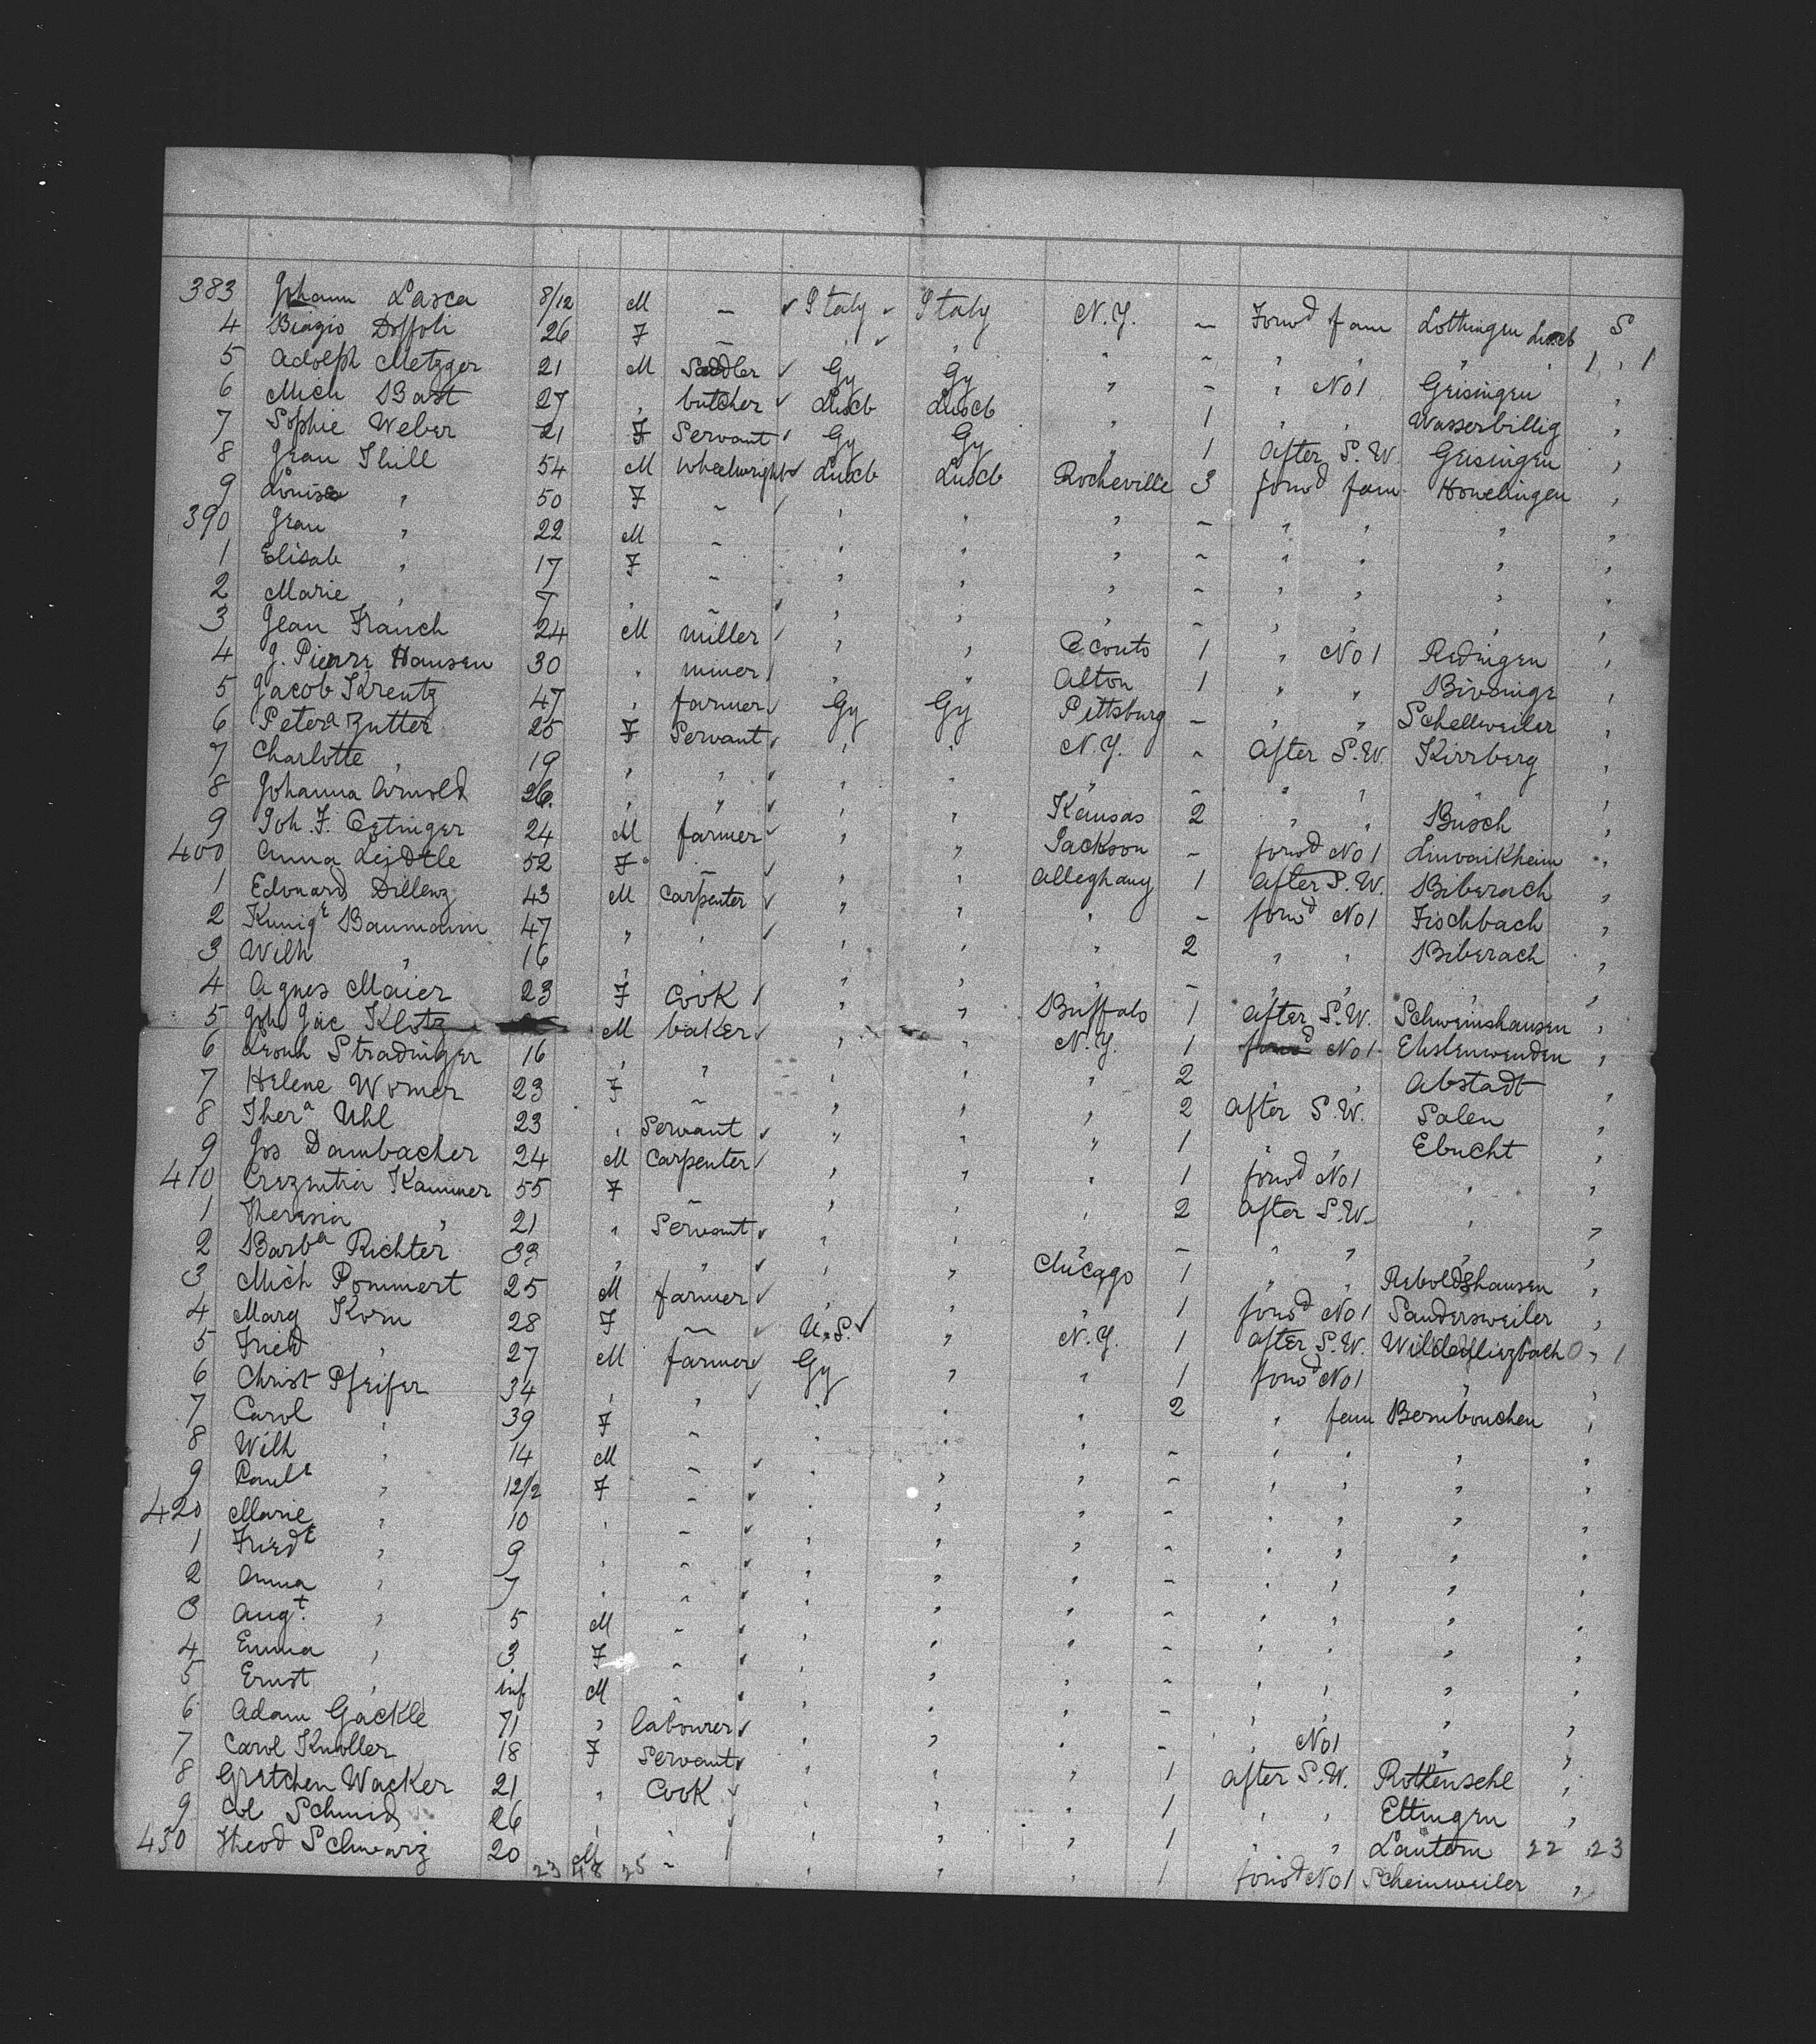 383 Johann Lasca 8/12 M – ✓ Italy ✓ Italy N.Y. – Forwd fam Lothingen Luxb S
4 Biagio Doffoli 26 F – " ✓ " " – " " " " 1 , 1
5 Adolph Metzger 21 M Saddler ✓ Gy Gy " – " No 1 Geisingen "
6 Mich Bast 27 " butcher ✓ Luxb Luxb " 1 " " Wasserbillig "
7 Sophie Weber 21 F Servant ✓ Gy Gy " 1 after S.W. Geisingen "
8 Jean Thill 54 M Wheelwright ✓ Luxb Luxb Rocheville 3 forwd fam Howelingen "
9 Louise " 50 F – ✓ " " " – " " " "
390 Jean " 22 M – " " " – " " " "
1 Elisab " 17 F – " " " – " " " "
2 Marie " 7 " – ✓ " " " – " " " "
3 Jean Frauch 24 M miller ✓ " " Econto 1 " No 1 Redingen "
4 J. Pierre Hausen 30 " miner ✓ " " Alton 1 " " Bivvinge "
5 Jacob Krentz 47 " farmer ✓ Gy Gy Pittsburg – " " Schellweiler "
6 Petera Zutter 25 F Servant ✓ " " N.Y. – after S.W. Kirrberg "
7 Charlotte " 19 " " ✓ " " " – " " " "
8 Johanna Arnold 26. " " ✓ " " Kansas 2 " " Busch "
9 Joh. F. Oetinger 24 M farmer ✓ " " Jackson – forwd No 1 Linvaikheim "
400 Anna Lejdtle 52 F – ✓ " " Alleghany 1 after S.W. Biberach "
1 Edouard Dillenz 43 M Carpenter ✓ " " " – forwd No 1 Fischbach "
2 Kunige Baumann 47 " " ✓ " " " 2 " " Biberach "
3 Wilh " 16 " " " " " – " " " "
4 Agnes Maier 23 F Cook ✓ " " Buffalo 1 after S.W. Schweinshausen "
5 Joh Jac Klotz M baker ✓ " " N.Y. 1 forwd No 1 Ehstenwenden "
6 Leonh Stradinger 16 " " " " " 2 " " Abstadt "
7 Helene Womer 23 F – " " " 2 after S.W. Salen "
8 Thera Uhl 23 " Servant ✓ " " " 1 " " Ebucht "
9 Jos Dambacher 24 M Carpenter ✓ " " " 1 forwd No 1 " "
410 Crezentia Kammer 55 F – " " " 2 after S.W. " "
1 Theresia " 21 " Servant ✓ " " " – " " " "
2 Barba Richter 33 " " ✓ " " Chicago 1 " " Reboldshausen "
3 Mich Pommert 25 M farmer ✓ " " " 1 forwd No 1 Saudersweiler "
4 Marg Korn 28 F – ✓ U.S. ✓ " N.Y. 1 after S.W. 0 , 1
5 Fried " 27 M farmer ✓ Gy " " 1 forwd No 1 " "
6 Christ Pfeifer 34 " " ✓ " " " 2 " fam Bernbouchen "
7 Carol " 39 F – " " " – " " " "
8 Wilh " 14 M – ✓ " " " – " " " "
9 Paule " 12/2 F – ✓ " " " – " " " "
420 Marie " 10 " – ✓ " " " – " " " "
1 Friedt " 9 " – ✓ " " " – " " " "
2 Anna " 7 " – ✓ " " " – " " " "
3 Augt. " 5 M – ✓ " " " – " " " "
4 Emma " 3 F – ✓ " " " – " " " "
5 Ernst " inf M – ✓ " " " – " " " "
6 Adam Gackle 71 " labourer ✓ " " " – " No 1 " "
7 Carol Knoller 18 F Servant ✓ " " " 1 after S.W. Rottensehl "
8 Gretchen Wacker 21 " Cook ✓ " " " 1 " " Ettingen "
9 Schmid 26 " " " " " 1 " " Lautern 22 23
430 Theod Schwarz 20 M – " " " 1 forwd No 1 Scheinweiler "
23 48 25